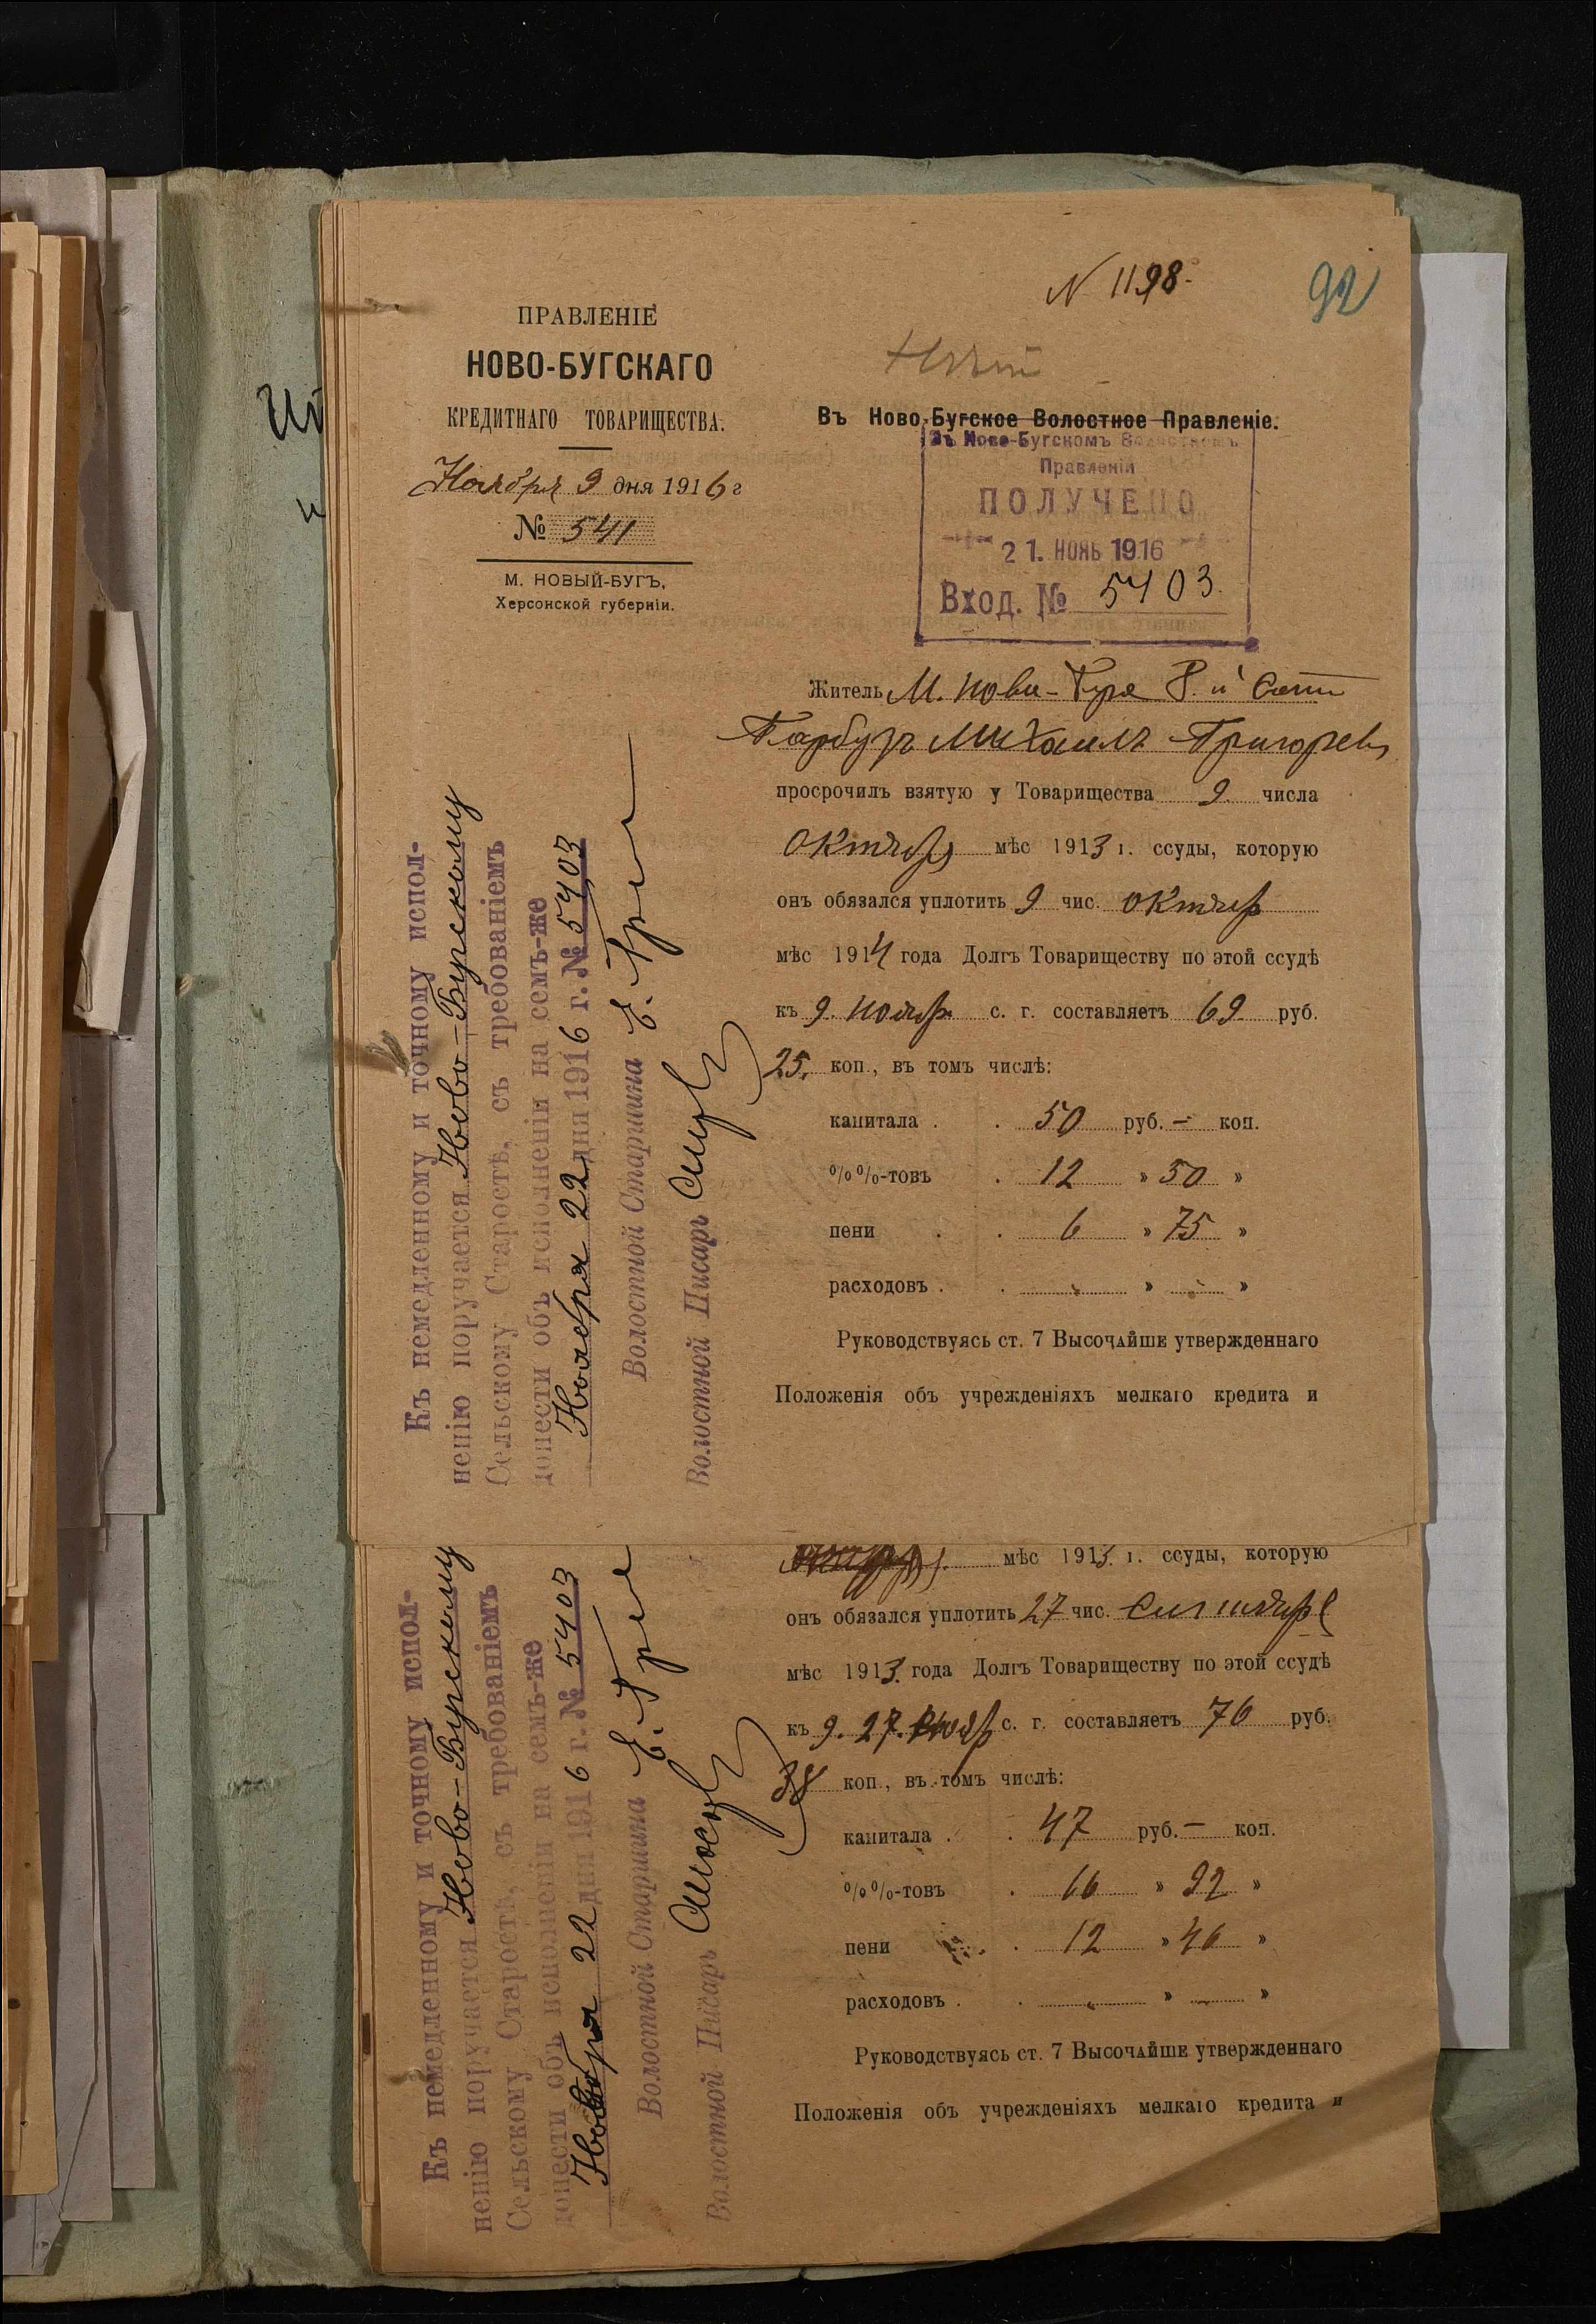 N 1198.
92
ПРАВЛЕНІЕ
НОВО-БУГСКАГО
КРЕДИТНАГО ТОВАРИЩЕСТВА.
Ноября 9 дня 1916 г
№ 541
М. НОВЫЙ-БУГЪ,
Херсонской губерніи.
Въ Ново-Бугское Волостное Правленіе.
Въ Ново-Бугскомъ Волостномъ
Правленіи
ПОЛУЧЕНО
21. НОЯБ 1916
Вход. № 5403.
Житель М. Нови-Буга
Михаилъ Григорьев
просрочилъ взятую у Товарищества 9. числа
Октябр мѣс 1913 г. ссуды, которую
онъ обязался уплотить 9 чис. Октябр
мѣс 1914 года Долгъ Товариществу по этой ссудѣ
къ 9. Ноябр с. г. составляетъ 69 руб.
25. коп., въ томъ числѣ:
капитала . . 50 руб. – коп.
%%-товъ . 12 » 50 »
пени . . 6 » 75 »
расходовъ . . » »
Руководствуясь ст. 7 Высочайше утвержденнаго
Положенія объ учрежденіяхъ мелкаго кредита и
Къ немедленному и точному испол-
ненію поручается Ново-Бугскому
Сельскому Старостѣ, съ требованіемъ
донести объ исполненіи на семъ-же
Ноября 22 дня 1916 г. № 5403
Волостной Старшина
Волостной Писарь
мѣс 1913. г. ссуды, которую
онъ обязался уплотить 27 чис. Сентября
мѣс 1913. года Долгъ Товариществу по этой ссудѣ
къ 9. 27. Ноябр с. г. составляетъ 76 руб.
38 коп., въ томъ числѣ:
капитала . . 47 руб. – коп.
%%-товъ . 16 » 92 »
пени . 12 » 46 »
расходовъ . . » »
Руководствуясь ст. 7 Высочайше утвержденнаго
Положенія объ учрежденіяхъ мелкаго кредита и
Къ немедленному и точному испол-
ненію поручается Ново-Бугскому
Сельскому Старостѣ, съ требованіемъ
донести объ исполненіи на семъ-же
Ноября 22 дня 1916 г. № 5403
Волостной Старшина
Волостной Писарь